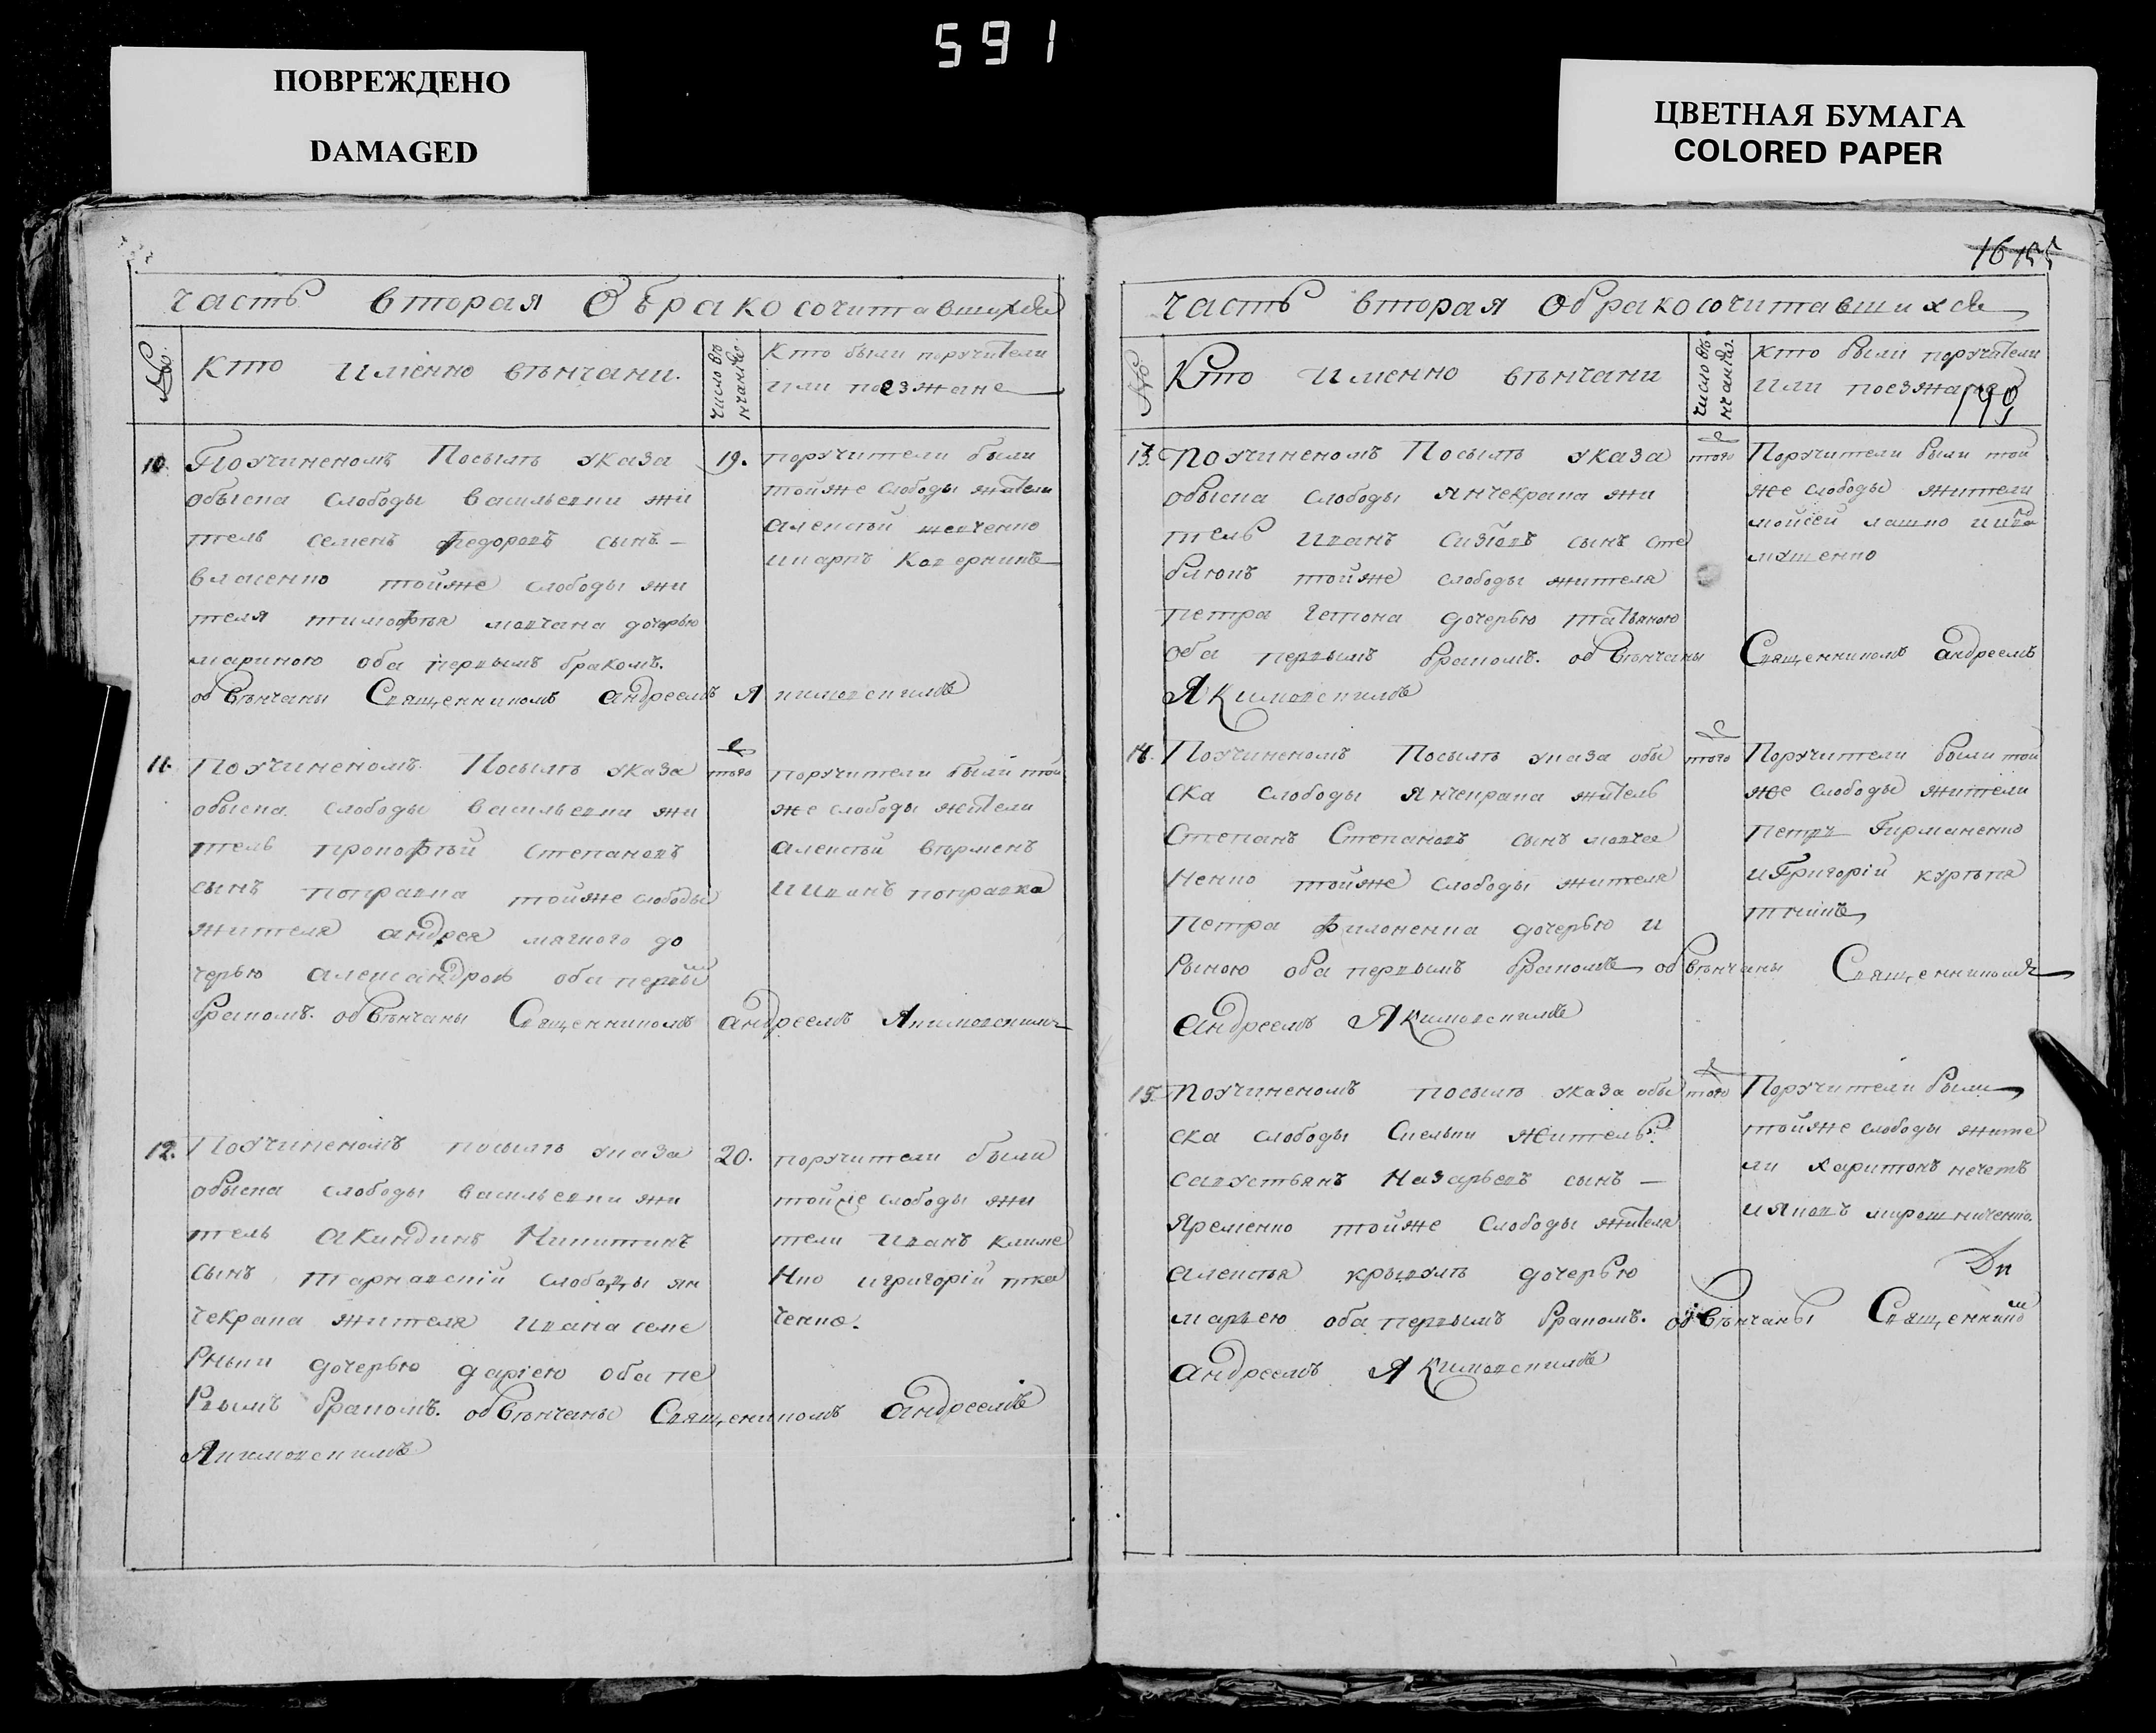 591
ПОВРЕЖДЕНО
DAMAGED
ЦВЕТНАЯ БУМАГА
COLORED PAPER
часть вторая О бракосочитавшихся
№
Кто именно венчани.
число вѣнчаниѡ.
Кто были поручители
или поезжане
10. По учиненомъ Посылѣ указа
обыска слободы васильевки жи
тель семенъ федоровъ сынъ
власенко тойже слободы жи
теля тимофѣя мовчана дочерью
мариною оба первымъ бракомъ.
обвѣнчаны Священникомъ андреемъ Якимовскимъ
19.
поручители были
тойже слободы жители
алексѣй шевченко
и марпъ
11. По учиненомъ Посылѣ указа
обыска слободы васильевки жи
тель прокофѣй степановъ
сынъ поправка тойже слободы
жителя андрея мягкого до
черью александрою оба первым
бракомъ. обвѣнчаны Священникомъ андреемъ Якимовскимъ
того
поручители были той
же слободы жители
алексѣй вѣрменъ
и иванъ поправка
12. По учиненомъ посылѣ указа
обыска слободы васильевки жи
тель акиндинъ Никитинъ
сынъ тарнавскій слободы ян
чекрака жителя ивана семе
рнѣки дочерью даріею оба пе
рвымъ бракомъ. обвѣнчаны Священникомъ андреемъ
Якимовскимъ
20.
поручители были
тойже слободы жи
тели иванъ климе
нко и григорій тка
ченко.
16
190
часть вторая О бракосочитавшихся
№
Кто именно вѣнчани
число вѣнчаниѡ.
кто были поручители
или поезжане
13. По учиненомъ Посылѣ указа
обыска слободы янчекрака жи
тель иванъ сизіовъ сынъ сте
блюкъ тойже слободы жителя
петра гетмона дочерью татьяною
оба первымъ бракомъ. обвѣнчаны Священникомъ андреемъ
Якимовскимъ
того
Поручители были той
же слободы жители
мойсей лашко и
14. По учиненомъ Посылѣ указа обы
ска слободы янчекрака житель
Степанъ Степановъ сынъ мовче
ненко тойже слободы жителя
петра филоненка дочерью и
риною оба первымъ бракомъ обвѣнчаны Священникомъ
андреемъ Якимовскимъ
того
Поручители были той
же слободы жители
петръ Гирманенко
и Григорій курѣпя
тникъ
15. По учиненомъ посылѣ указа обы
ска слободы Скельки житель
савустьянъ Назарьевъ сынъ
яременко тойже слободы жителя
алексѣя крывулѣ дочерью
марьею оба первымъ бракомъ. обвѣнчаны Священником
андреемъ Якимовскимъ
того
Поручители были
тойже слободы жите
ли харитонъ нечетъ
и яковъ мирошниченко.